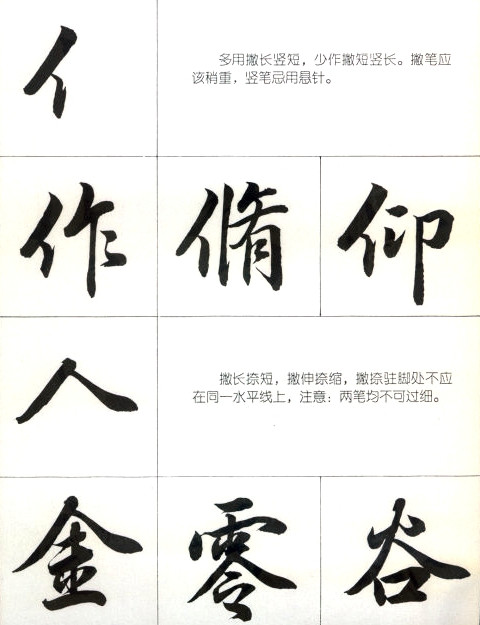 亻
多用撇长竖短，少作撇短竖长。撇笔应
该稍重，竖笔忌用悬针。
作 脩 仰
人
撇长捺短，撇伸捺缩，撇捺驻脚处不应
在同一水平线上，注意：两笔均不可过细。
金 零 谷